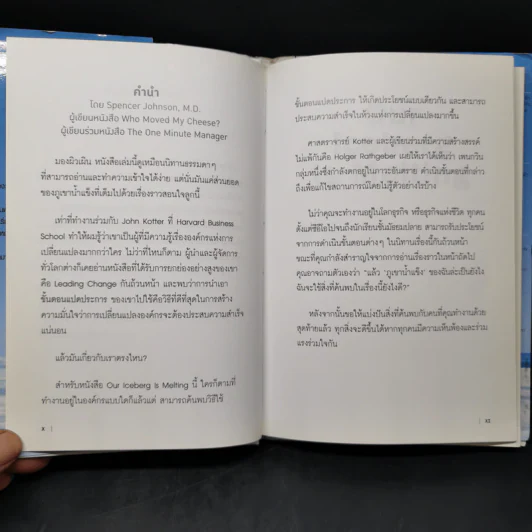 คำนำ
โดย Spencer Johnson, M.D.
ผู้เขียนหนังสือ Who Moved My Cheese?
ผู้เขียนร่วมหนังสือ The One Minute Manager
มองผิวเผิน หนังสือเล่มนี้ดูเหมือนนิทานธรรมดาๆ
ที่สามารถอ่านและทำความเข้าใจได้ง่าย แต่นั่นมันแค่ส่วนยอด
ของภูเขาน้ำแข็งที่เต็มไปด้วยเรื่องราวสอนใจลูกนี้
เท่าที่ทำงานร่วมกับ John Kotter ที่ Harvard Business
School ทำให้ผมรู้ว่าเขาเป็นผู้ที่มีความรู้เรื่ององค์กรแห่งการ
เปลี่ยนแปลงมากกว่าใคร ไม่ว่าที่ไหนก็ตาม ผู้นำและผู้จัดการ
ทั่วโลกต่างก็เคยอ่านหนังสือที่ได้รับการยกย่องอย่างสูงของเขา
คือ Leading Change กันถ้วนหน้า และพบว่าการนำเอา
ขั้นตอนแปดประการ ของเขาไปใช้คือวิธีที่ดีที่สุดในการสร้าง
ความมั่นใจว่าการเปลี่ยนแปลงองค์กรจะต้องประสบความสำเร็จ
แน่นอน
แล้วมันเกี่ยวกับเราตรงไหน?
สำหรับหนังสือ Our Iceberg is Melting นี้ ใครก็ตามที่
ทำงานอยู่ในองค์กรแบบใดก็แล้วแต่ สามารถค้นพบวิธีใช้
x
ขั้นตอนแปดประการ ให้เกิดประโยชน์แบบเดียวกัน และสามารถ
ประสบความสำเร็จในห้วงแห่งการเปลี่ยนแปลงมากขึ้น
ศาสตราจารย์ Kotter และผู้เขียนร่วมที่มีความสร้างสรรค์
ไม่แพ้กันคือ Holger Rathgeber เผยให้เราได้เห็นว่า เพนกวิน
กลุ่มหนึ่งซึ่งกำลังตกอยู่ในภาวะอันตราย ดำเนินขั้นตอนที่กล่าว
ถึงเพื่อแก้ไขสถานการณ์โดยไม่รู้ตัวอย่างไรบ้าง
ไม่ว่าคุณจะทำงานอยู่ในโลกธุรกิจ หรือธุรกิจแห่งชีวิต ทุกคน
ตั้งแต่ซีอีโอไปจนถึงนักเรียนชั้นมัธยมปลาย สามารถรับประโยชน์
จากการดำเนินขั้นตอนต่างๆ ในนิทานเรื่องนี้กันถ้วนหน้า
ขณะที่คุณกำลังสำราญใจจากการอ่านเรื่องราวในหน้าถัดไป
คุณอาจถามตัวเองว่า "แล้ว 'ภูเขาน้ำแข็ง' ของฉันล่ะเป็นยังไง
ฉันจะใช้สิ่งที่ค้นพบในเรื่องนี้ยังไงดี?"
หลังจากนั้นขอให้แบ่งปันสิ่งที่ค้นพบกับคนที่คุณทำงานด้วย
สุดท้ายแล้ว ทุกสิ่งจะดีขึ้นได้หากทุกคนมีความเห็นพ้องและร่วม
แรงร่วมใจกัน